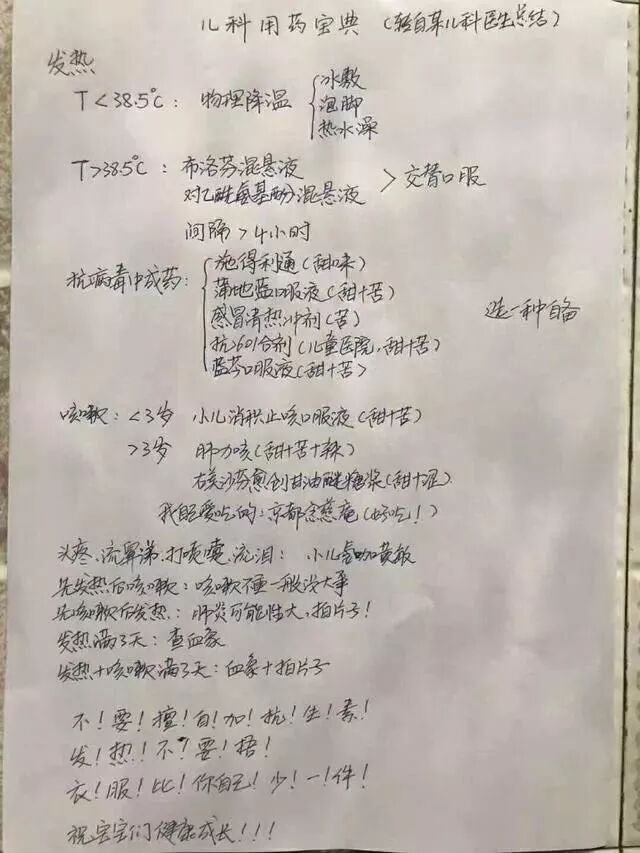 儿科用药宝典（转自某儿科医生总结）
发热
T<38.5℃：物理降温 { 冰敷
泡脚
热水澡
T>38.5℃：布洛芬混悬液
对乙酰氨基酚混悬液 > 交替口服
间隔>4小时
抗病毒中成药：{ 施得利通（甜味）
蒲地蓝口服液（甜+苦）
感冒清热冲剂（苦） 选一种自备
抗601合剂（儿童医院，甜+苦）
蓝芩口服液（甜+苦）
咳嗽：<3岁 小儿消积止咳口服液（甜+苦）
>3岁 肺力咳（甜+苦+辣）
右美沙芬愈创甘油醚糖浆（甜+涩）
我自己爱吃的：京都念慈庵（好吃！）
头疼、流鼻涕、打喷嚏、流泪：小儿氨咖黄敏
先发热后咳嗽：咳嗽不重一般没大事
先咳嗽后发热：肺炎可能性大，拍片子！
发热满3天：查血象
发热+咳嗽满3天：血象+拍片子
不！要！擅！自！加！抗！生！素！
发！热！不！要！捂！
衣！服！比！你自己！少！一！件！
祝宝宝们健康成长！！！